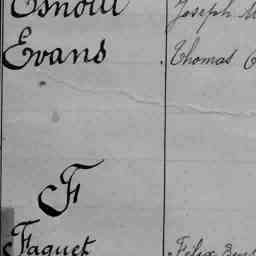 Joseph
Evans Thomas
F
Faquet Felix